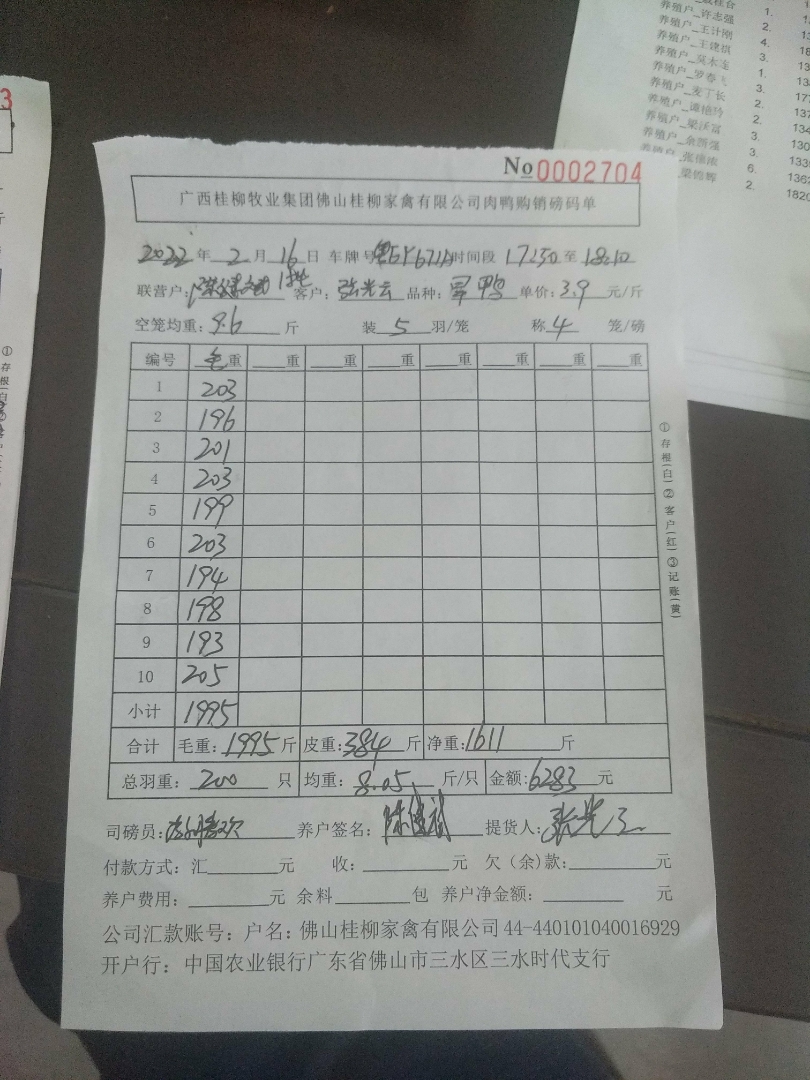 No 0002704
广西桂柳牧业集团佛山桂柳家禽有限公司肉鸭购销磅码单
2022年2月16日 车牌号 时间段 17:50至18:10
联营户: 客户: 张光云 品种: 鸭 单价:3.9元/斤
空笼均重:9.6斤 装5羽/笼 称4笼/磅
编号 毛重 重 重 重 重 重 重 重
1 203
2 196
3 201
4 203
5 199
6 203
7 194
8 198
9 193
10 205
小计 1995
合计 毛重:1995斤 皮重:384斤 净重:1611斤
总羽重:200只 均重:8.05斤/只 金额:6283元
司磅员: 养户签名: 提货人:
付款方式:汇 元 收: 元 欠(余)款: 元
养户费用: 元 余料 包 养户净金额: 元
公司汇款账号:户名:佛山桂柳家禽有限公司 44-440101040016929
开户行:中国农业银行广东省佛山市三水区三水时代支行
①存根(白)②客户(红)③记账(黄)
养殖户_许志强
养殖户_王计刚